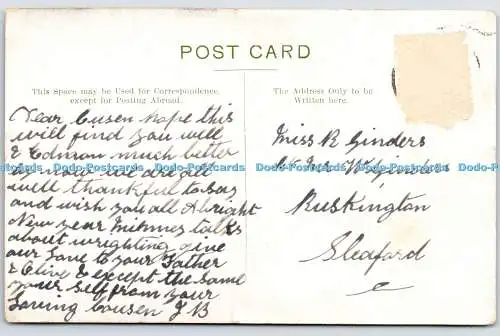 POST CARD
This Space may be Used for Correspondence,
except for Posting Abroad.
Dear Cusen hope this
will find you well
& Edman much better
well thankful to say
and wish you all A bright
New year talks
about wrighting give
our love to your Father
& Clive & except the same
your self from your
loving cousen J B
The Address Only to be
Written here.
Miss R Ginders
Ruskington
Sleaford
Dodo-Postcards Dodo-Postcards Dodo-Postcards Dodo-Postcards Dodo-Postcards